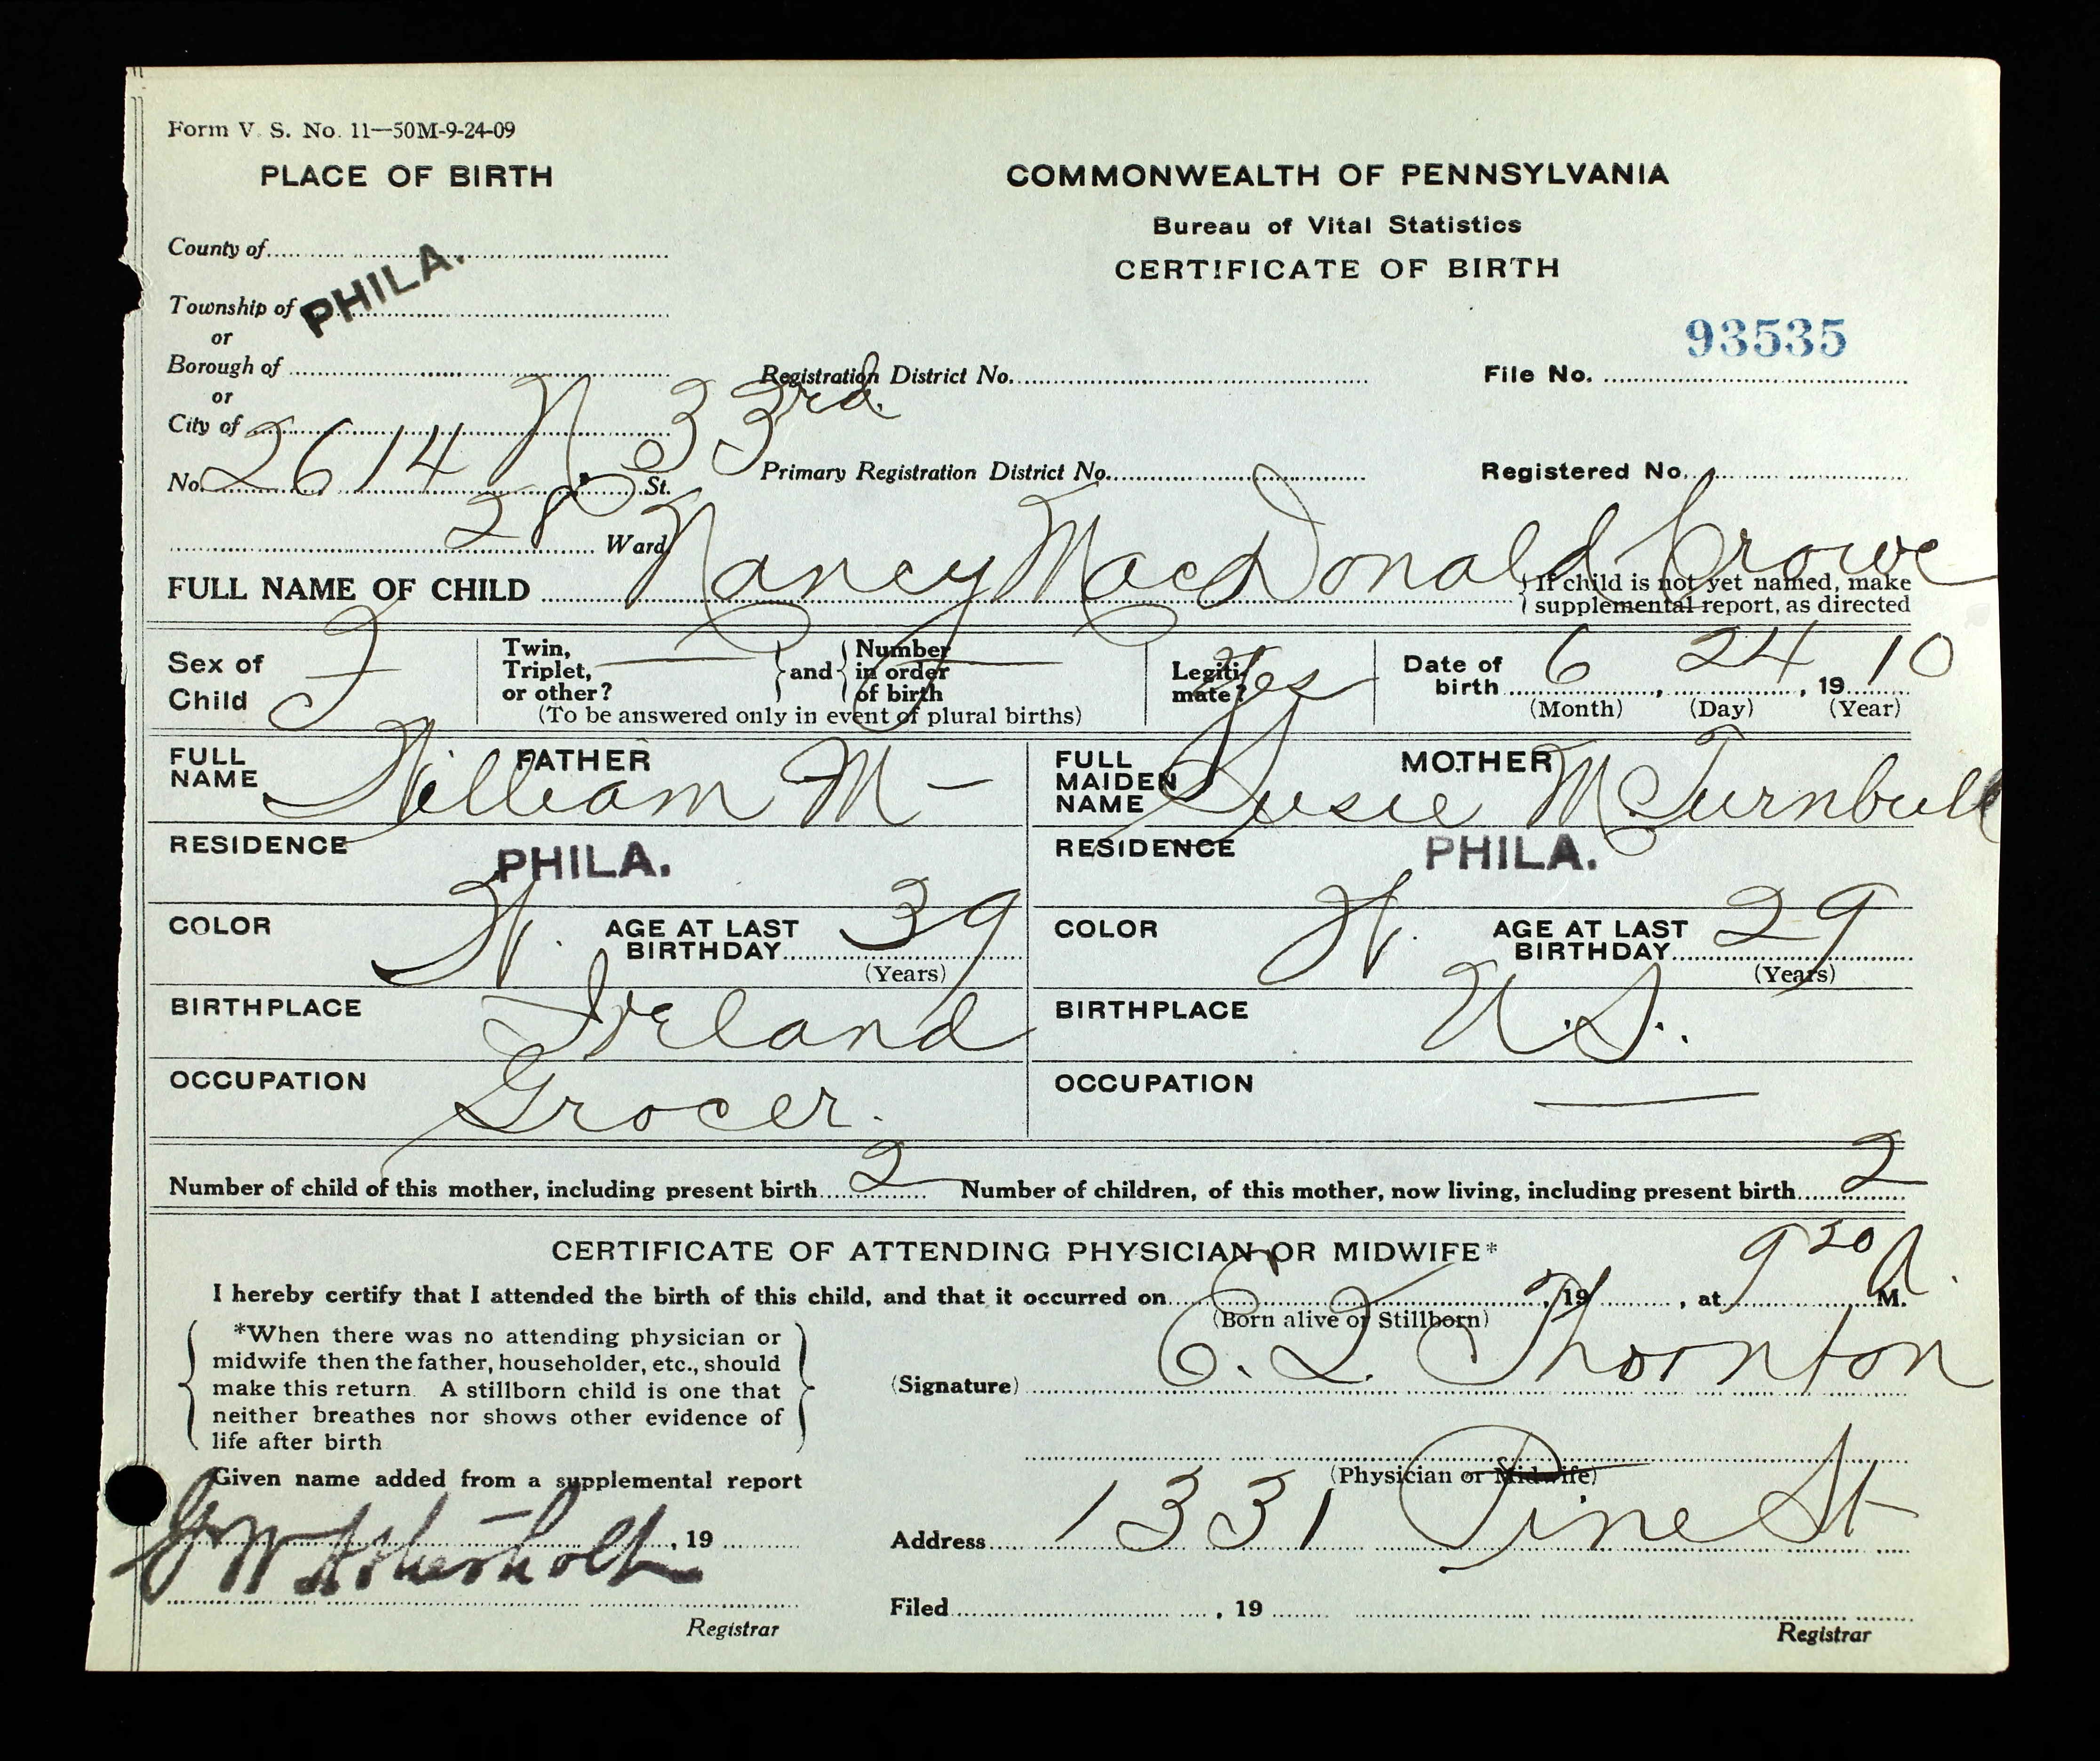 Form V. S. No. 11—50M-9-24-09
PLACE OF BIRTH
County of
PHILA.
Township of
or
Borough of
or
City of
No. 2614 N. 33rd St.
28 Ward
COMMONWEALTH OF PENNSYLVANIA
Bureau of Vital Statistics
CERTIFICATE OF BIRTH
93535
Registration District No. File No.
Primary Registration District No. Registered No.
FULL NAME OF CHILD Nancy MacDonald Crowe
{ If child is not yet named, make
supplemental report, as directed
Sex of
Child F
Twin,
Triplet,
or other? — } and { Number
in order
of birth —
(To be answered only in event of plural births)
Legiti-
mate? Yes
Date of
birth 6, 24, 1910
(Month) (Day) (Year)
FATHER
FULL
NAME William M —
RESIDENCE PHILA.
COLOR W. AGE AT LAST
BIRTHDAY 39
(Years)
BIRTHPLACE Ireland
OCCUPATION Grocer.
MOTHER
FULL
MAIDEN
NAME Susie M Turnbull
RESIDENCE PHILA.
COLOR W. AGE AT LAST
BIRTHDAY 29
(Years)
BIRTHPLACE U.S.
OCCUPATION —
Number of child of this mother, including present birth 2 Number of children, of this mother, now living, including present birth 2
CERTIFICATE OF ATTENDING PHYSICIAN OR MIDWIFE*
I hereby certify that I attended the birth of this child, and that it occurred on , 19 , at 9 30 A. M.
(Born alive or Stillborn)
{ *When there was no attending physician or
midwife then the father, householder, etc., should
make this return. A stillborn child is one that
neither breathes nor shows other evidence of
life after birth }
(Signature) E. Q. Thornton
(Physician or Midwife)
Given name added from a supplemental report
, 19
Registrar
Address 1331 Pine St
Filed , 19
Registrar